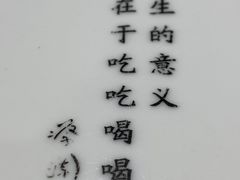 生的意义
在于吃吃喝喝